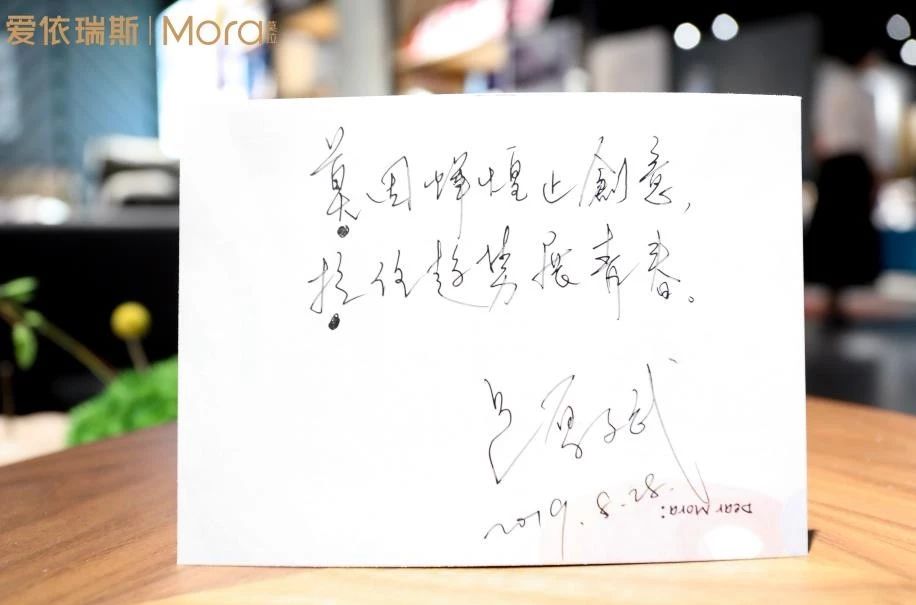 爱依瑞斯 | Mora
莫因辉煌止創意，
拉住趋势展青春。
2019.8.28.
Dear Mora: